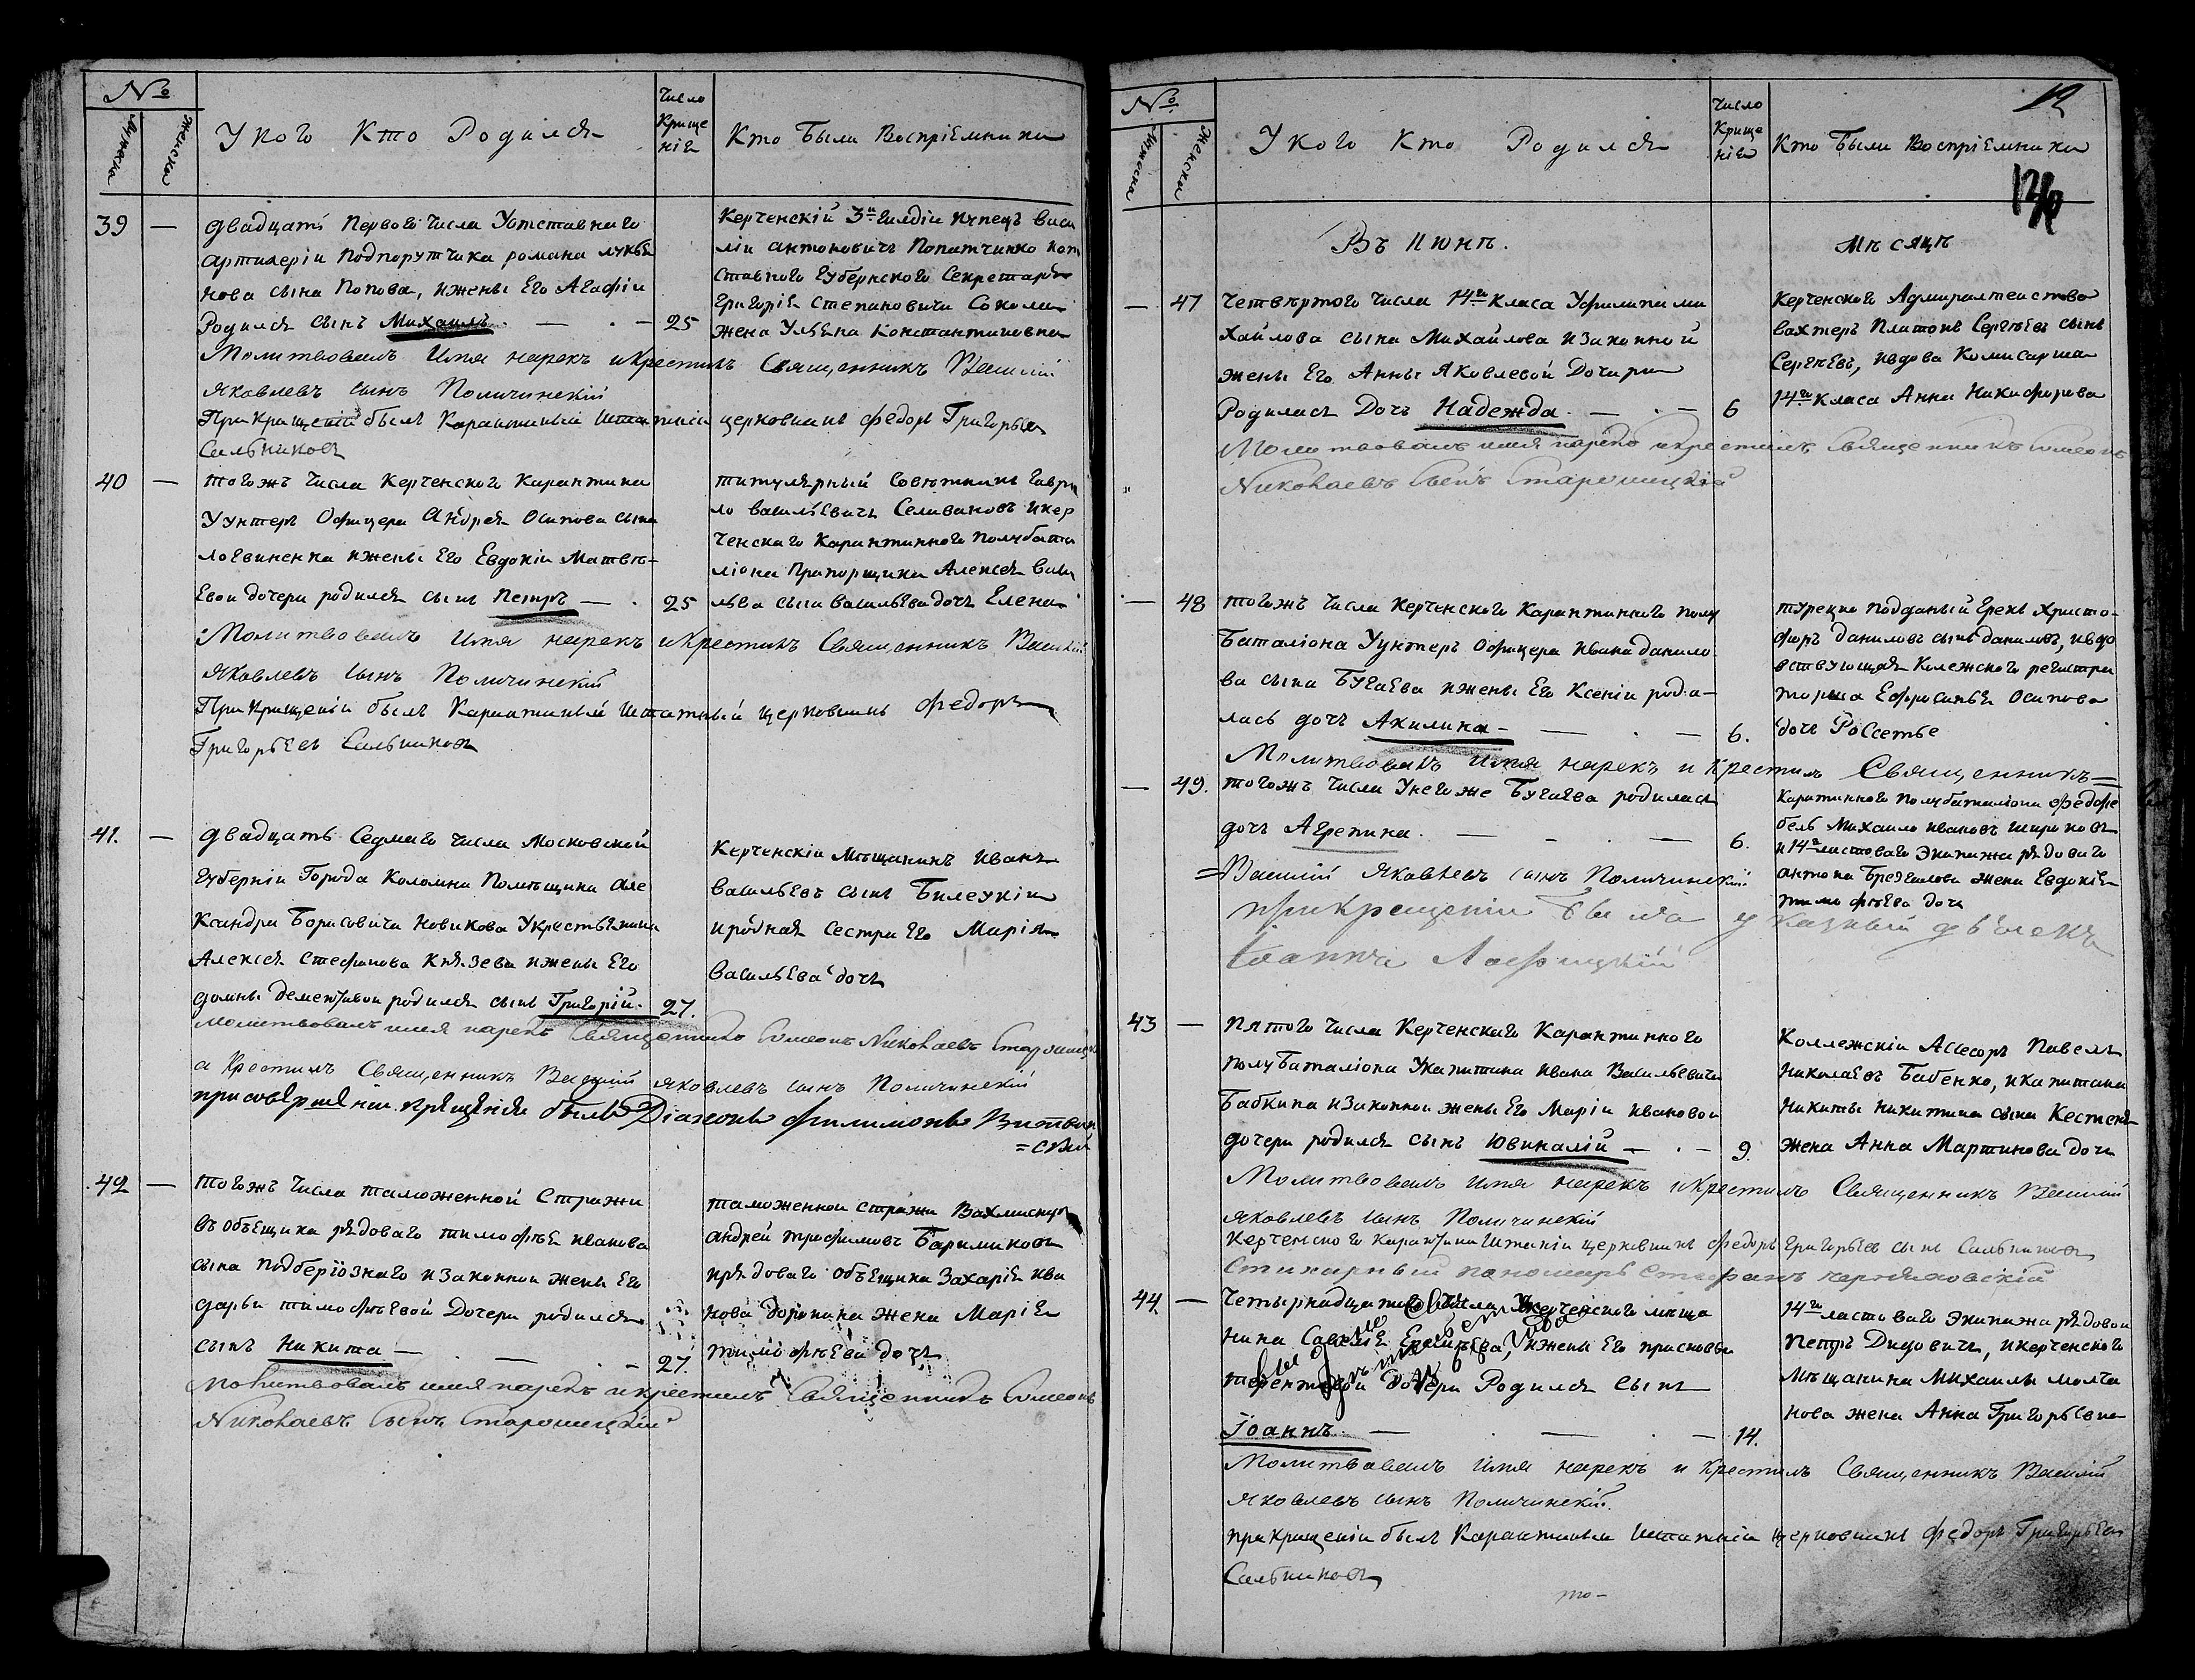 №
Мужеска
Женска
У кого Кто Родился
Число Крещенія
Кто Были Воспріемники
39 —
двадцать Первого Числа Уотставного
артилеріи Подпорутчика романа лукья
нова сына Попова, ижены Его Агафіи
Родился сынъ Михаилъ. — . — 25
Керченскій 3й гилдіи Купецъ васи
лій антоновичъ Попатченко иот
ставного Губернского Секретаря
Григорія Степановича Сокола
жена Ульяна Константиновна
Молитвовалъ Имя нарекъ икрестилъ Священникъ Василій
Яковлевъ сынъ Поличинскій
При Крещеніи былъ Карантинный Штатній церковникъ Федоръ Григорьев
Сальников
40 —
тогожъ Числа Керченского Карантина
Уунтеръ Офицера Андрея Осипова сына
логвиненка ижены Его Евдокіи Матвѣ-
Евои дочери родился сынъ Петръ — . 25
титулярный Совѣтникъ Гаври
ло васильевичъ Селивановъ икер
ченского Карантинного Полубата
ліона Прапорщика Алексея Васи
льва сына васильева дочь Елена
Молитвовалъ Имя нарекъ икрестилъ Священникъ Василій
Яковлевъ сынъ Поличинскій
При Крещеніи былъ Карантинный Штатный церковникъ Федоръ
Григорьевъ Сальников
41. —
двадцать Седмаго Числа Московской
Губерніи Города Коломны Помѣщика Але
ксандра Борисовича Новикова Укрестьянина
Алексея Стефанова Князева ижены Его
домны дементьевои родился сынъ Григорій. 27.
Керченскіи Мѣщанинъ Иванъ
васильевъ сынъ Билецкіи
иродная Сестра Его Марія
васильева дочь
Молитвовалъ имя нарекъ Священникъ Симеонъ Николаевъ Старошицк
а Крестилъ Священникъ Василій яковлевъ сынъ Поличинскій
присовершеніи. крещенія былъ Діаконъ филимонъ Витвин
=скій
42 —
тогожъ Числа таможенной Стражи
въ объещика рядоваго тимофѣя иванова
сына Подберіознаго изаконнои жены Его
дарьи тимофѣевой Дочери родился
сынъ Никита — . — . — 27.
таможеннои стражи Вахмистръ
андрей трофимовъ Баримиков
ирядоваго объещика Захарія ива
нова доронина жена Марія
тимофѣева дочь
Молитвовалъ имя нарекъ икрестилъ Священникъ Симеонъ
Николаевъ Сынъ Старошицкій
12
12
№
Мужеска
Женска
У кого Кто Родился
Число Крещенія
Кто Были Воспріемники
Въ Июнѣ. Мѣсяцѣ
— 47
Четвѣртого Числа 14го Класа Уфилипа ми
хайлова сына Михайлова изаконной
жены Его Анны Яковлевой Дочери
Родилась Дочь Надежда. — . — 6
Керченского Адмиралтейства
вахтеръ Платонъ Сергѣевъ сынъ
Сергѣевъ, ивдова Комисарша
14го Класа Анна Никифорова
Молитвовалъ имя нарекъ икрестилъ Священникъ Симеонъ
Николаевъ Сынъ Старошицкій
— 48
тогожъ Числа Керченского Карантинного полу
Баталіона Уунтеръ Офицера ивана данило
ва сына Бугаева ижены Его Ксеніи роди-
лась дочь Акилина — — . — 6.
турецко подданый Грекъ Христо-
форъ даниловъ сынъ даниловъ, ивдо
вствующая Колежского регистра
торша Ефросинья Осипова
дочь Россетье
Молитвовалъ Имя нарекъ и Крестилъ Священникъ =
— 49.
тогожъ Числа Унегоже Бугаева родилась
дочь Агрепина. — - — 6.
Карантинного Полубаталіона федфе
бель Михаило ивановъ широков
и 14го ластоваго Экипажа рядоваго
антона Брезгалова жена Евдокія
тимофѣева дочь
= Василій Яковлевъ сынъ Поличинскій
При крещеніи Была указный дьячекъ
Іоаннъ
43 —
Пятого Числа Керченскаго Карантинного
Полубаталіона Укапитана ивана Васильевича
Бабкина изаконнои жены Его Маріи ивановои
дочери родился сынъ Ювиналій — . — 9.
Коллежскіи Асесоръ Павелъ
Николаевъ Бабенко, икапитана
Никиты Никитина сына Кестеня
жена Анна Мартинова дочь
Молитвовалъ Имя нарекъ икрестилъ Священникъ Василій
яковлевъ сынъ Поличинскій
Керченского Карантина Штатніи церковникъ Федоръ Григорьевъ сынъ Сальников
Стихарный пономарь Стефанъ черняховскій
44. —
Четырнадцатого Числа Укерченского мѣща
нина Савелія ижены Его прасковьи
терентьевой дочери Родился сынъ
Іоаннъ. — . — . — 14.
14го ластоваго Экипажа рядовои
Петръ Дидовичъ, икерченского
Мѣщанина Михаилы молча
нова жена Анна Григорьевна
Молитвовалъ Имя нарекъ и Крестилъ Священникъ Василій
яковлевъ сынъ Поличинскій.
при крещеніи былъ Карантинныи Штатніи церковникъ Федоръ Григорьев
Сальников
то-